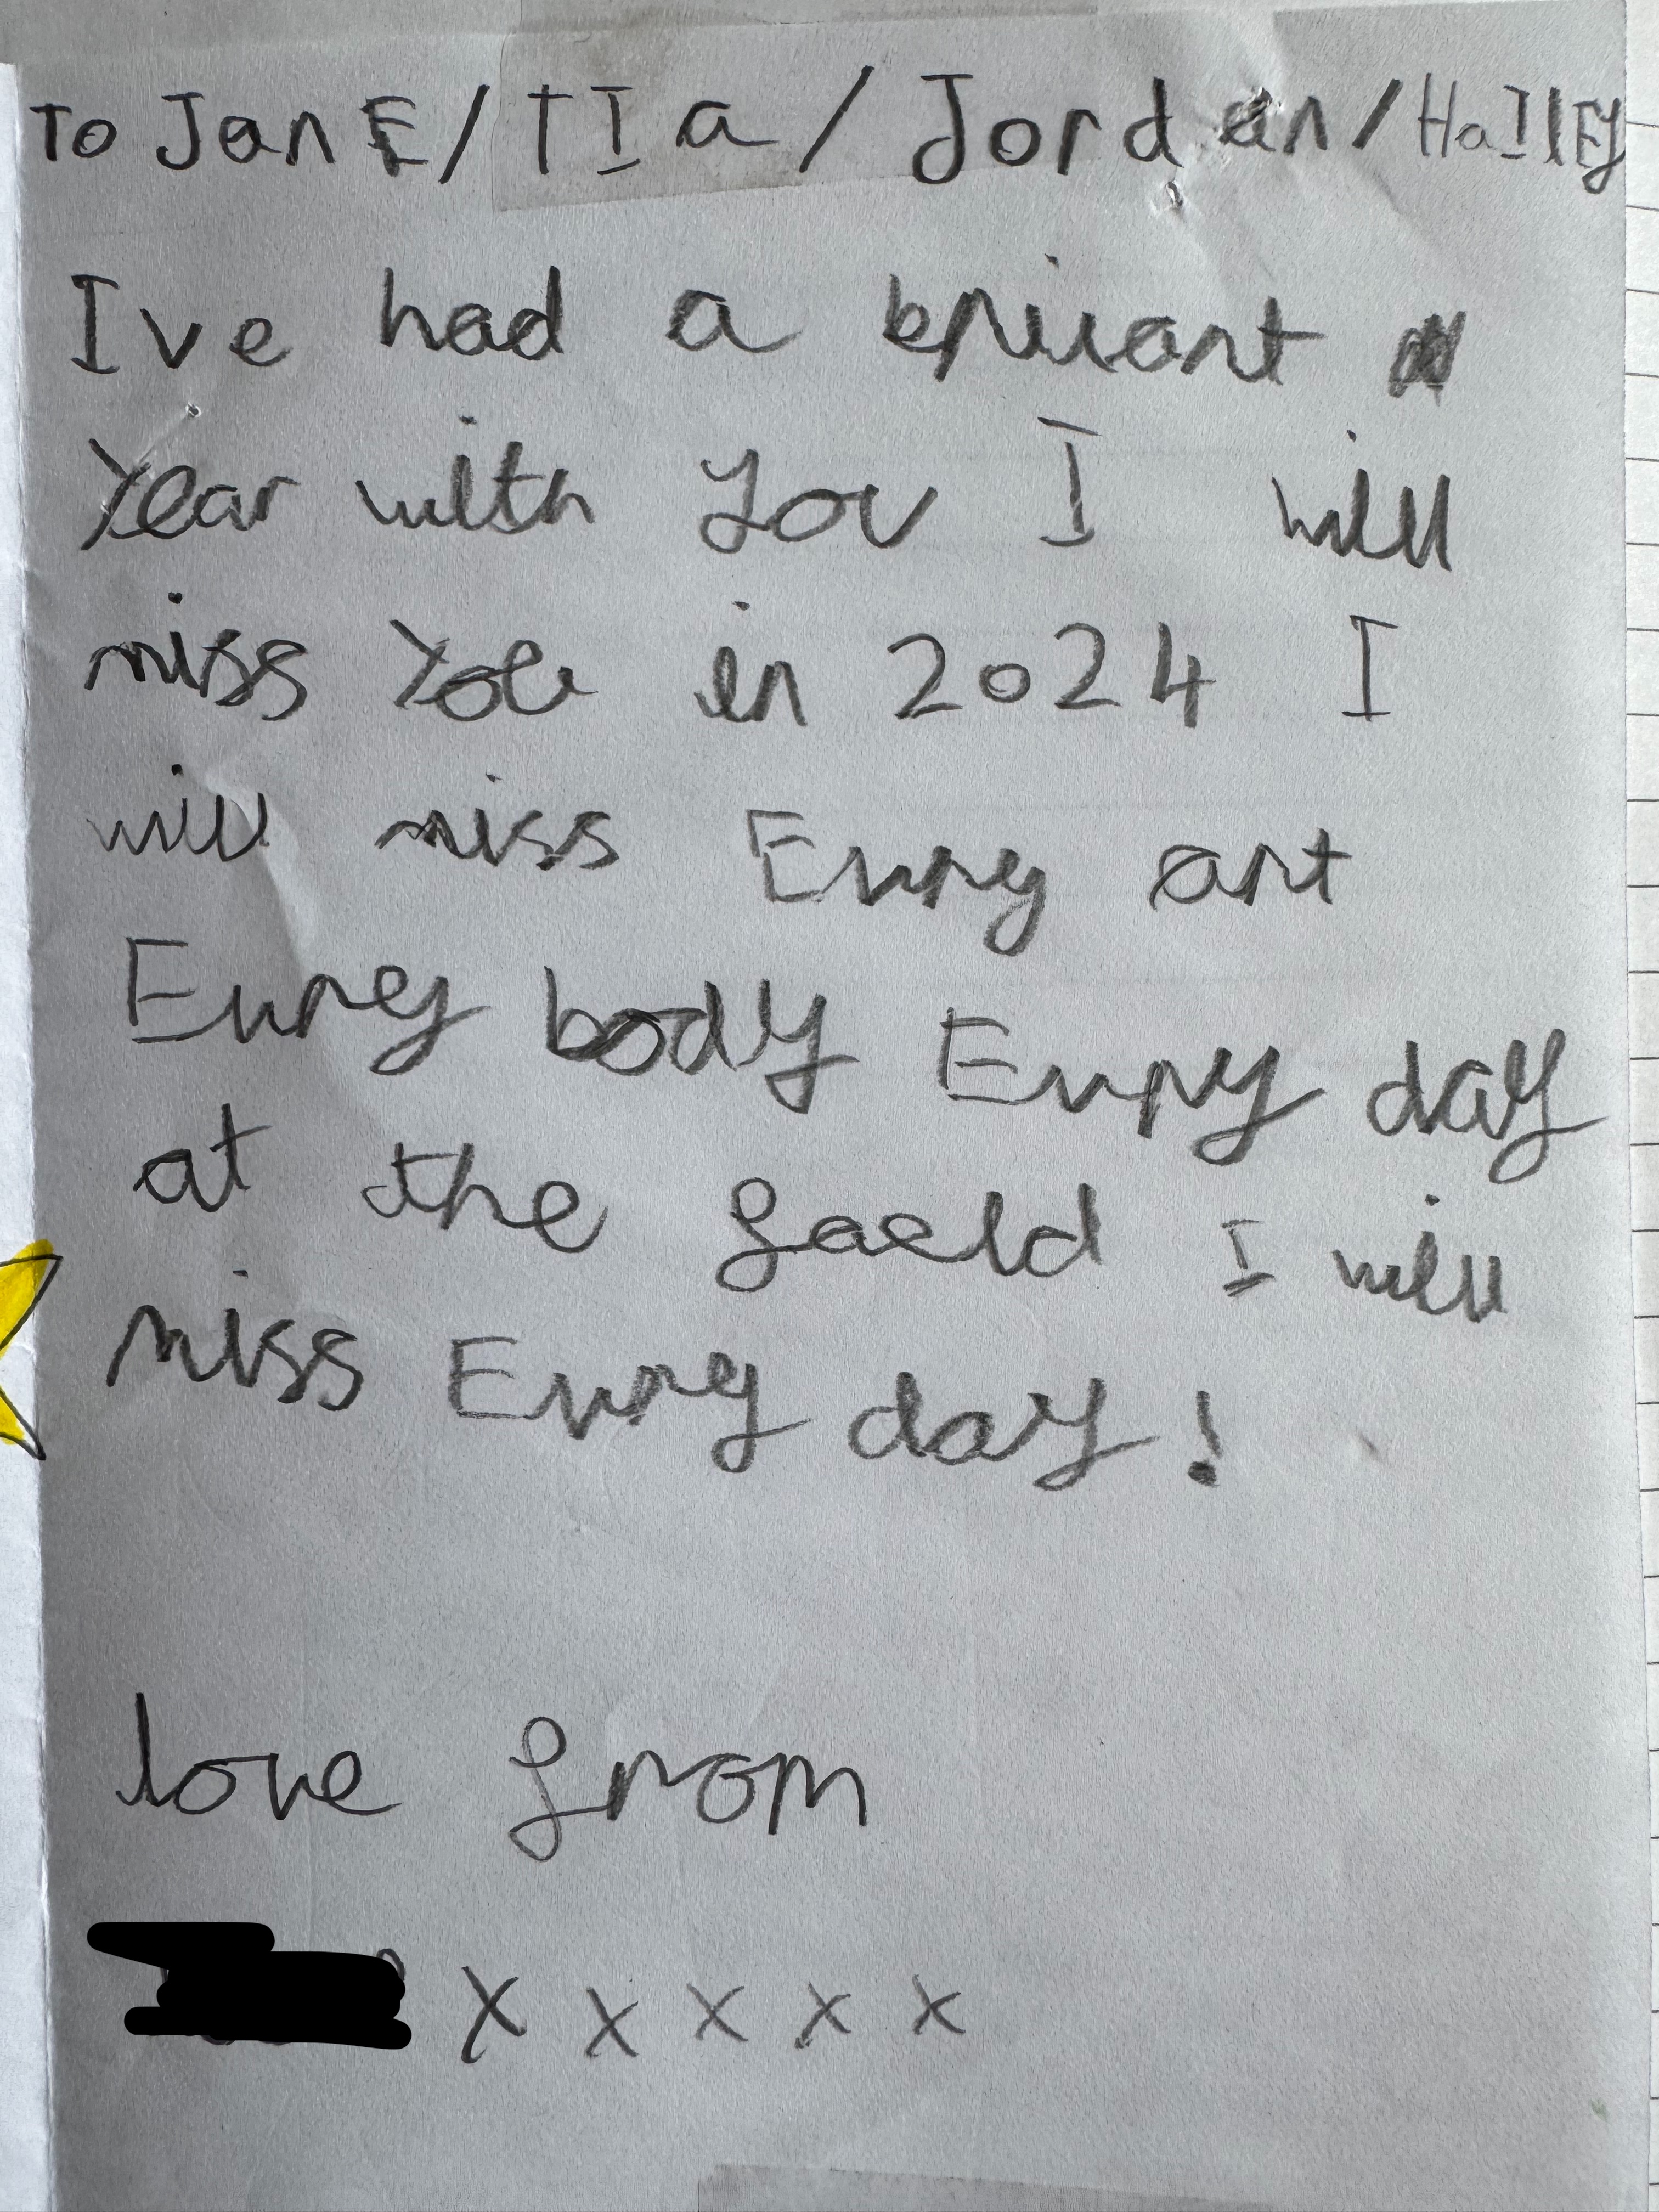 To JanE/TIa/Jordan/HaIlEy
Ive had a briliant
Year with you I will
miss you in 2024 I
will miss Evrey art
Evrey body Evry day
at the faeld I will
miss Evrey day!
love from
x x x x x